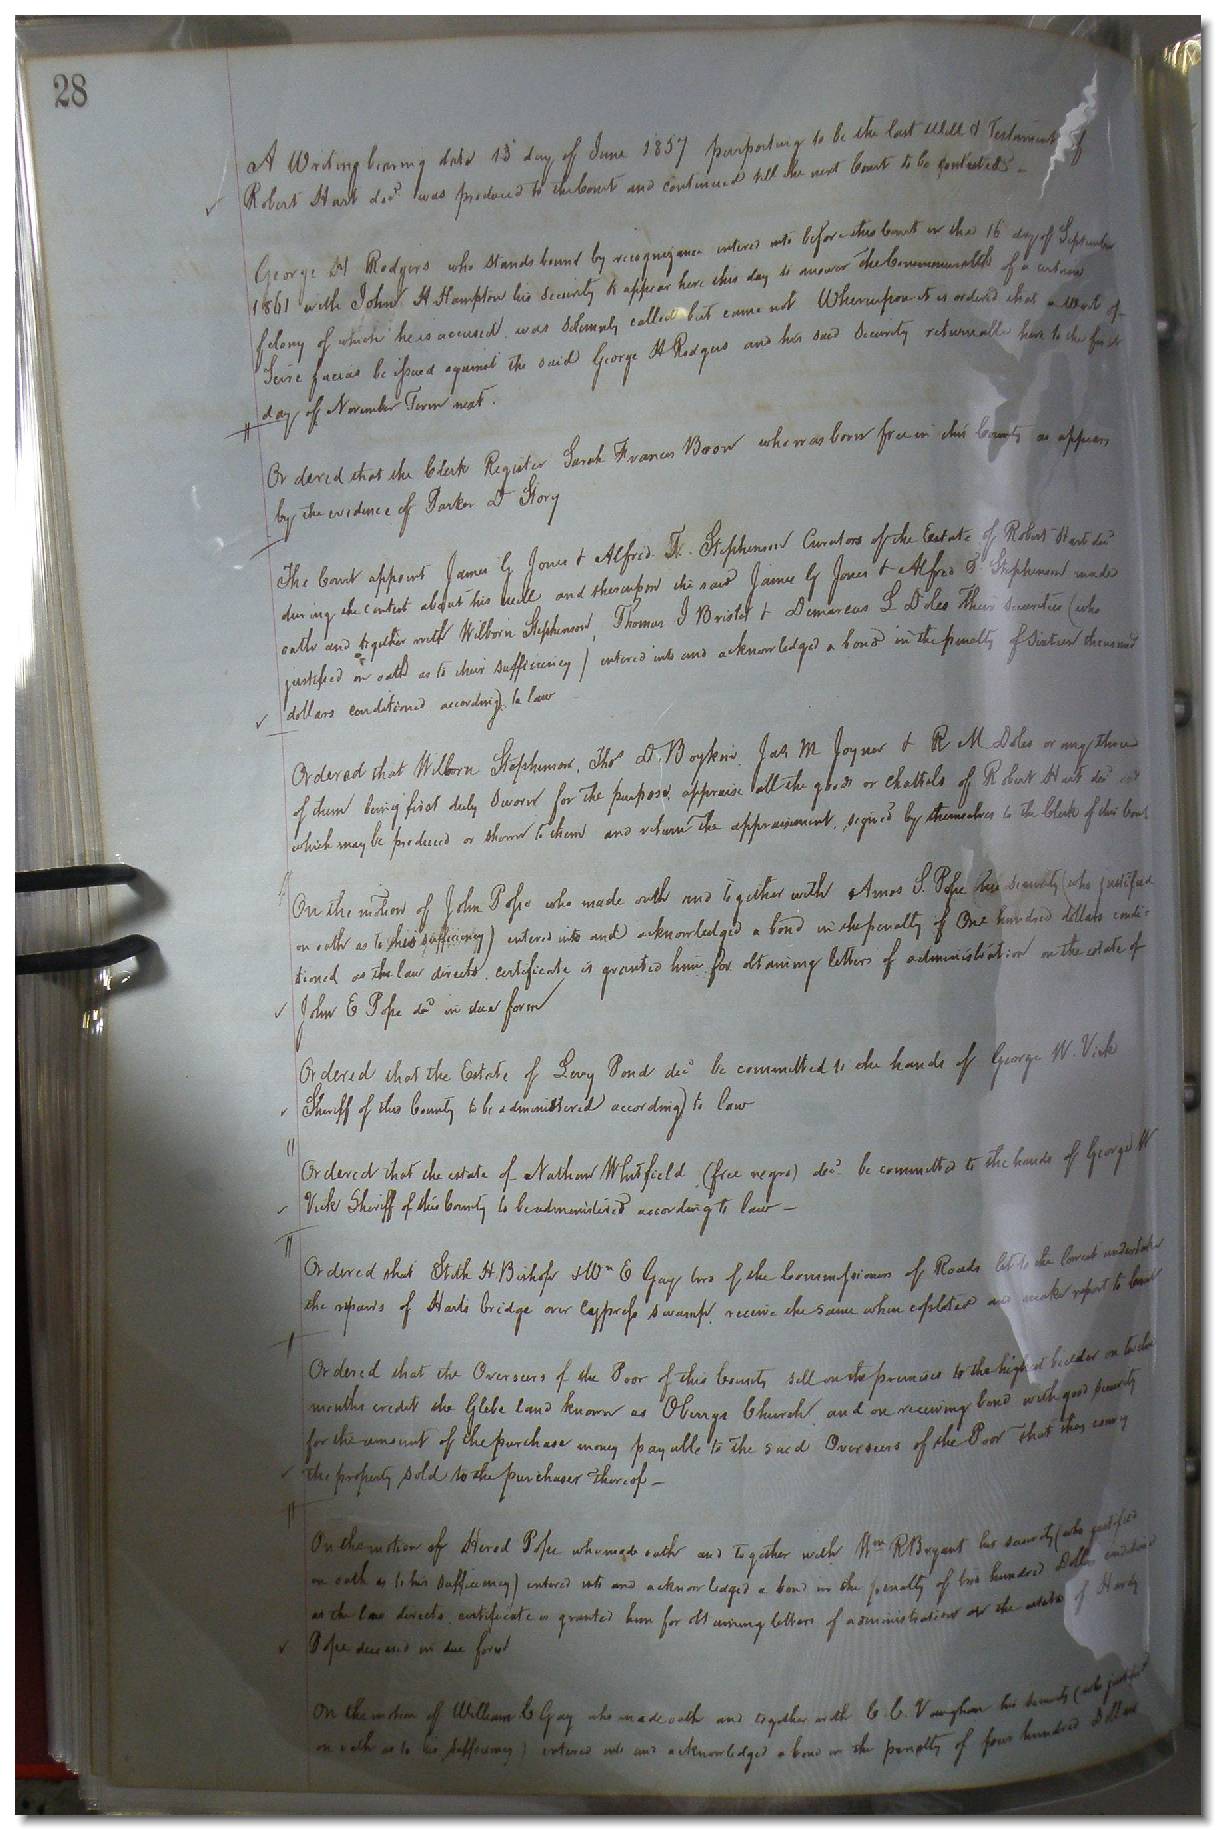 28
A Writing bearing date 15 day of June 1857 purporting to be the last Will & Testament of
Robert Hart decd was produced to the Court and continued till the next Court to be contested –
George H Rodgers who stands bound by recognizance entered into before this Court on the 16 day of September
1861 with John H Hampton his security to appear here this day to answer the Commonwealth of a certain
felony of which he is accused, was solemnly called but came not Whereupon it is ordered that a Writ of
Scire facias be issued against the said George H Rodgers and his said Security returnable here to the first
day of November Term next.
Ordered that the Clerk Register Sarah Frances Boon who was born free in this County as appears
by the evidence of Parker D Story
The Court appoint James G Jones & Alfred Stephenson Curators of the Estate of Robert Hart decd
during the contest about his will and thereupon the said James G Jones & Alfred Stephenson made
oath and together with Wilborn Stephenson, Thomas J Bristol & Demarcus L Doles their securities (who
justified on oath as to their sufficiency) entered into and acknowledged a bond in the penalty of Sixteen thousand
dollars conditioned according to law
Ordered that Wilborn Stephenson, Thos D. Boykin, Jas M Joyner & R M Doles or any three
of them being first duly sworn for the purpose, appraise all the goods or chattels of Robert Hart decd
which may be produced or shown to them and return the appraisement, signed by themselves to the Clerk of this Court
On the motion of John Pope who made oath and together with Amos S. Pope his security (who justified
on oath as to his sufficiency) entered into and acknowledged a bond in the penalty of One hundred dollars condi-
tioned as the law directs, certificate is granted him for obtaining letters of administration on the estate of
John E Pope decd in due form
Ordered that the Estate of Levy Pond decd be committed to the hands of George W. Vick
Sheriff of this County to be administered according to law
Ordered that the estate of Nathan Whitfield (free negro) decd be committed to the hands of George W
Vick Sheriff of this County to be administered according to law –
Ordered that Stith H. Bishop & Wm E Gay two of the Commissioners of Roads let to the lowest undertaker
the repairs of Harts bridge over Cypress swamp, receive the same when copleted and make report to Court
Ordered that the Overseers of the Poor of this County sell on the premises to the highest bidder on twelve
months credit the Glebe land known as Oberrys Church, and on receiving bond with good security
for the amount of the purchase money payable to the said Overseers of the Poor that they convey
the property sold to the purchaser thereof –
On the motion of Herod Pope who made oath and together with Wm R Bryant his security (who justified
on oath as to his sufficiency) entered into and acknowledged a bond in the penalty of two hundred Dollars conditioned
as the law directs, certificate is granted him for obtaining letters of administration on the estate of Hardy
Pope deceased in due form
On the motion of William C Gay who made oath and together with C. C. Vaughan his security (who justified
on oath as to his sufficiency) entered into and acknowledged a bond in the penalty of four hundred Dollars